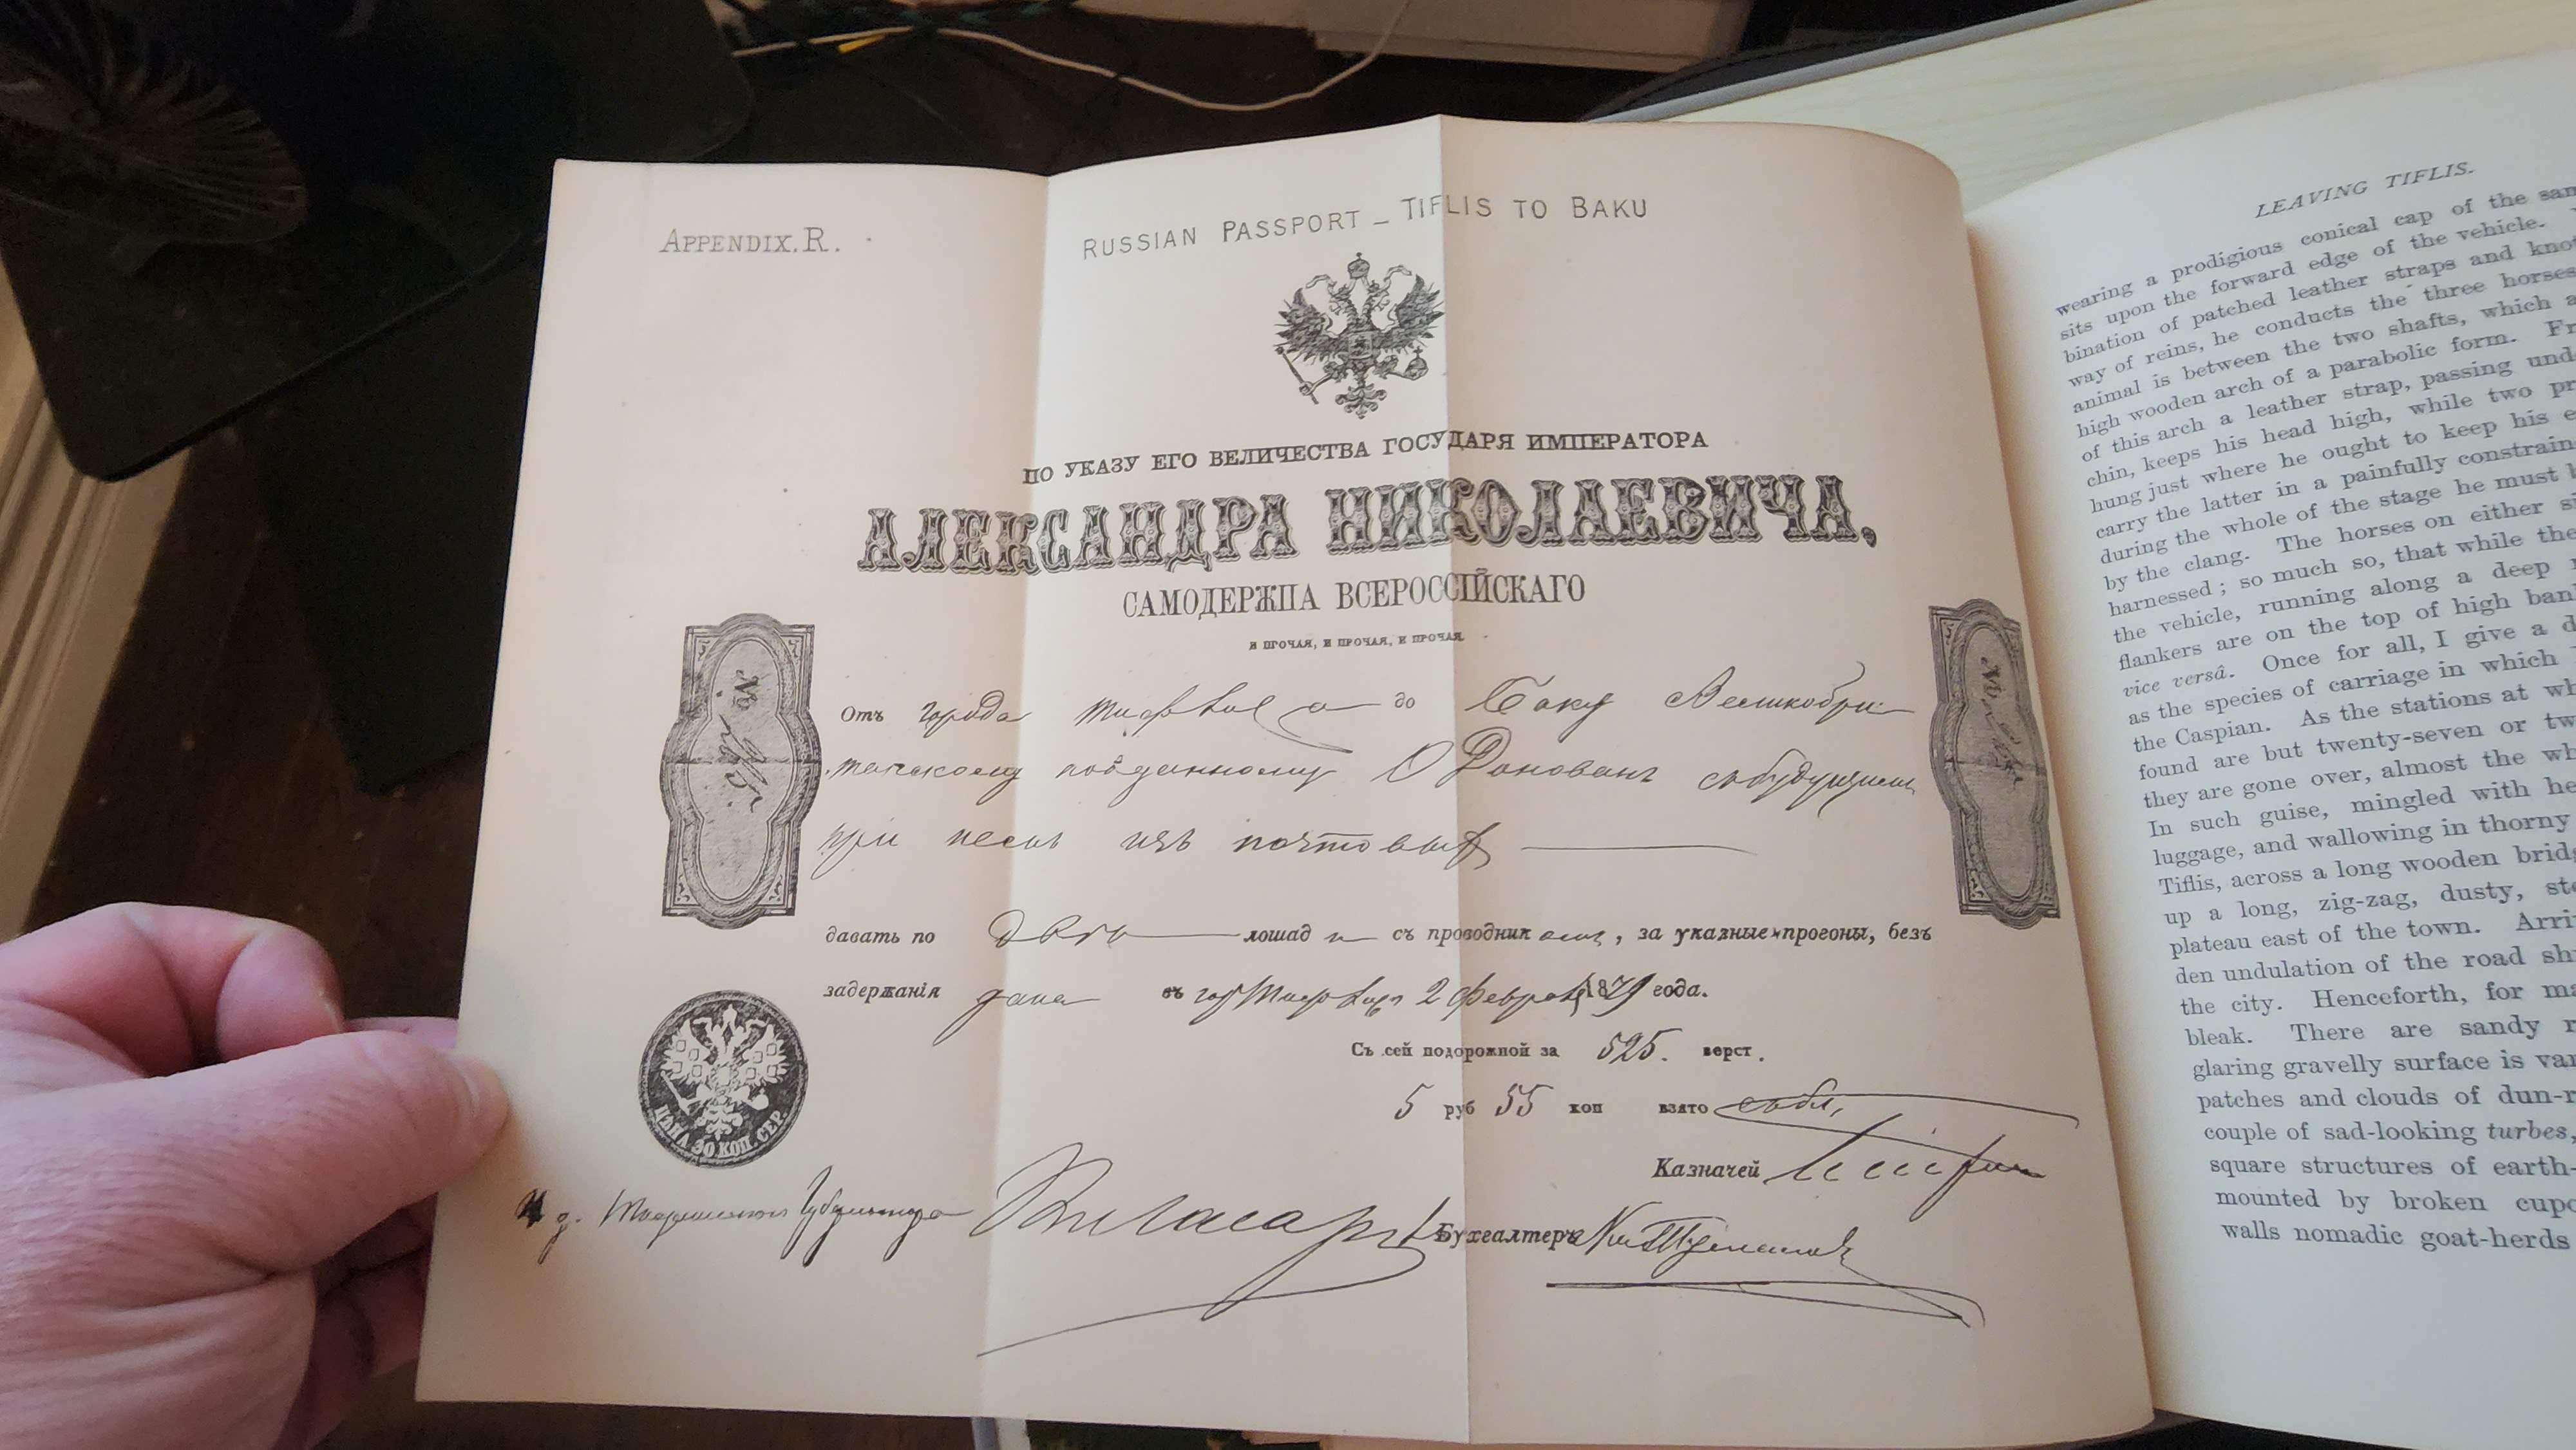 APPENDIX. R.
RUSSIAN PASSPORT – TIFLIS TO BAKU
ПО УКАЗУ ЕГО ВЕЛИЧЕСТВА ГОСУДАРЯ ИМПЕРАТОРА
АЛЕКСАНДРА НИКОЛАЕВИЧА,
САМОДЕРЖЦА ВСЕРОССІЙСКАГО
И ПРОЧАЯ, И ПРОЧАЯ, И ПРОЧАЯ.
Отъ города Тифлиса до Баку Великобри-
танскому подданному О'Доновану съ будущимъ
при немъ изъ почтовыхъ
давать по двѣ лошади съ проводникомъ, за указные прогоны, безъ
задержанія дана въ гор Тифлисѣ 2 Февраля 1879 года.
Съ сей подорожной за 525. верст.
5 руб 55 коп взято
Казначей
ЦѢНА 30 КОП. СЕР.
И д. Тифлисскаго Губернатора
Бухгалтеръ
LEAVING TIFLIS.
wearing a prodigious conical cap of the
sits upon the forward edge of the vehicle.
bination of patched leather straps and
way of reins, he conducts the three horses
animal is between the two shafts, which
high wooden arch of a parabolic form.
of this arch a leather strap, passing
chin, keeps his head high, while two
hung just where he ought to keep his
carry the latter in a painfully
during the whole of the stage he must
by the clang. The horses on either
harnessed; so much so, that while the
the vehicle, running along a deep
flankers are on the top of high
vice versâ. Once for all, I give a
as the species of carriage in which
the Caspian. As the stations at
found are but twenty-seven or
they are gone over, almost the
In such guise, mingled with
luggage, and wallowing in thorny
Tiflis, across a long wooden
up a long, zig-zag, dusty,
plateau east of the town.
den undulation of the road
the city. Henceforth, for
bleak. There are sandy
glaring gravelly surface is
patches and clouds of
couple of sad-looking turbes,
square structures of earth-
mounted by broken
walls nomadic goat-herds